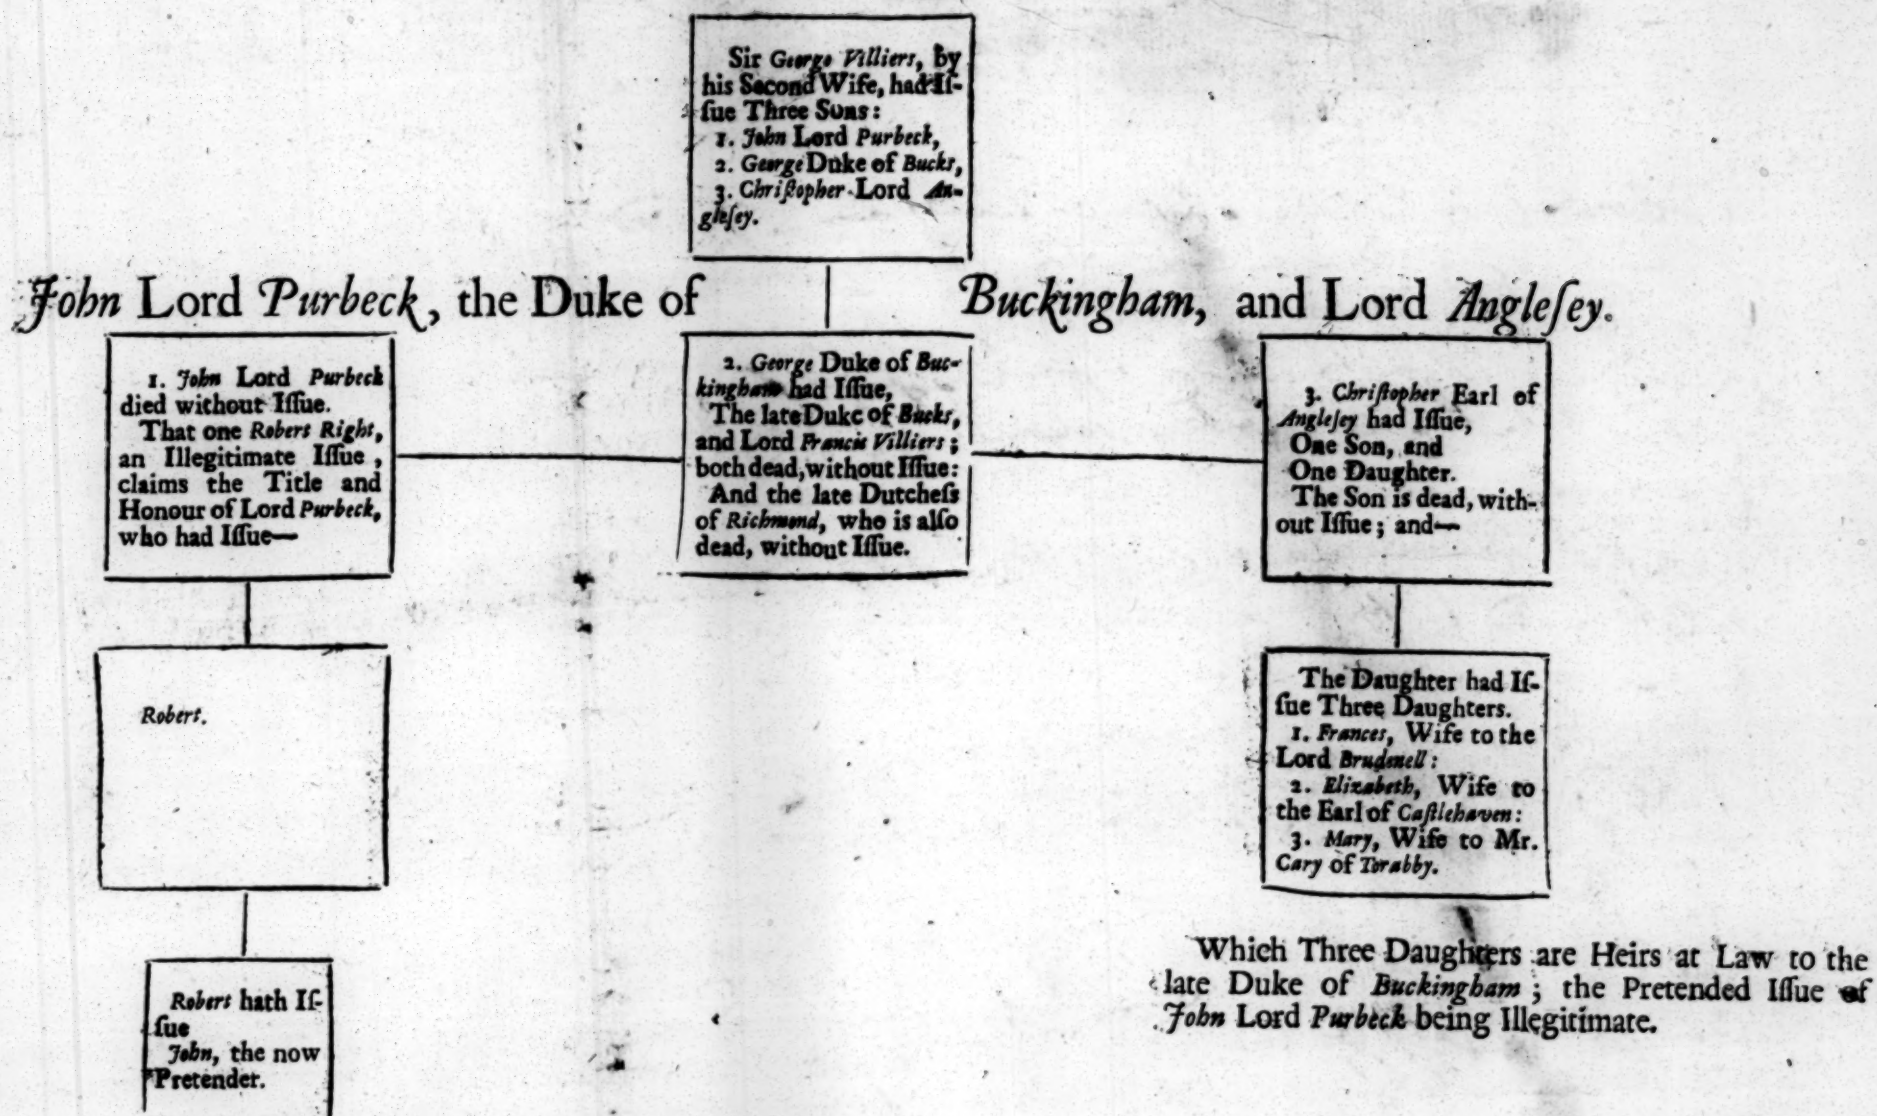 Sir George Villiers, by
his Second Wife, had Iſ-
ſue Three Sons:
1. John Lord Purbeck,
2. George Duke of Bucks,
3. Chriſtopher Lord An-
gleſey.
John Lord Purbeck, the Duke of Buckingham, and Lord Angleſey.
1. John Lord Purbeck
died without Iſſue.
That one Robert Right,
an Illegitimate Iſſue,
claims the Title and
Honour of Lord Purbeck,
who had Iſſue—
2. George Duke of Buc-
kingham had Iſſue,
The late Duke of Bucks,
and Lord Francis Villiers;
both dead, without Iſſue:
And the late Dutcheſs
of Richmond, who is alſo
dead, without Iſſue.
3. Chriſtopher Earl of
Angleſey had Iſſue,
One Son, and
One Daughter.
The Son is dead, with-
out Iſſue; and—
Robert.
The Daughter had Iſ-
ſue Three Daughters.
1. Frances, Wife to the
Lord Brudenell:
2. Elizabeth, Wife to
the Earl of Caſtlehaven:
3. Mary, Wife to Mr.
Cary of Torabby.
Robert hath Iſ-
ſue
John, the now
Pretender.
Which Three Daughters are Heirs at Law to the
late Duke of Buckingham; the Pretended Iſſue of
John Lord Purbeck being Illegitimate.